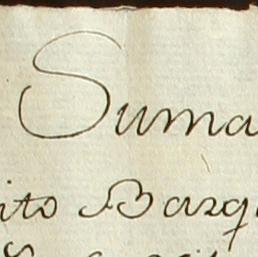 Suma
ito Barq